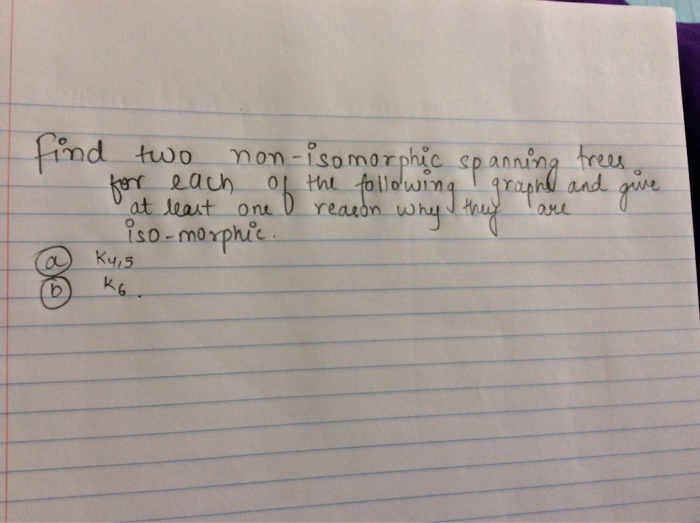 find two non-isomorphic spanning trees
for each of the following graphs and give
at least one reason why they are
iso-morphic.
(a) K4,5
(b) K6.